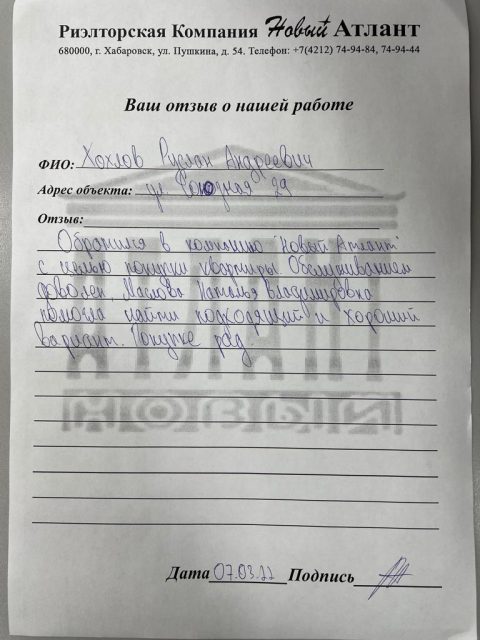 Риэлторская Компания Новый Атлант
680000, г. Хабаровск, ул. Пушкина, д. 54. Телефон: +7(4212) 74-94-84, 74-94-44
Ваш отзыв о нашей работе
ФИО: Хохлов Руслан Андреевич
Адрес объекта: ул 29
Отзыв:
Обратился в компанию "Новый Атлант"
с целью покупки квартиры. Обслуживанием
доволен. Маслова Наталья Владимировка
помогла найти подходящий и хороший
вариант. Покупке рад.
Дата 07.03.22 Подпись